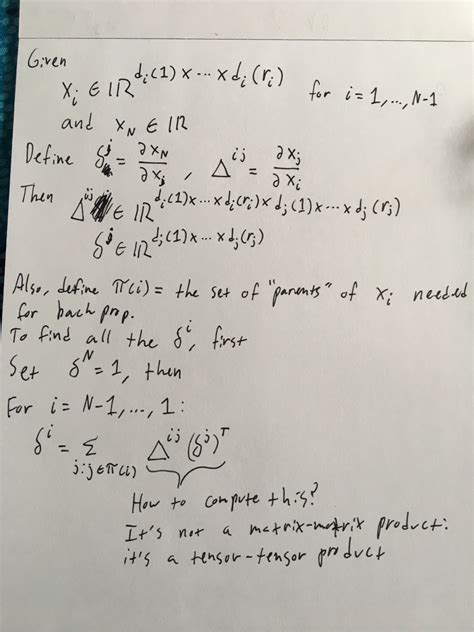 Given
x_i ∈ ℝ^{d_i(1) × ⋯ × d_i(r_i)} for i = 1, ..., N-1
and x_N ∈ ℝ
Define δ^j = ∂x_N / ∂x_j , Δ^{ij} = ∂x_j / ∂x_i
Then Δ^{ij} ∈ ℝ^{d_i(1) × ⋯ × d_i(r_i) × d_j(1) × ⋯ × d_j(r_j)}
δ^j ∈ ℝ^{d_j(1) × ⋯ × d_j(r_j)}
Also, define π(i) = the set of "parents" of x_i needed
for backprop.
To find all the δ^i, first
Set δ^N = 1, then
For i = N-1, ..., 1:
δ^i = Σ_{j: j ∈ π(i)} Δ^{ij} (δ^j)^T
How to compute this?
It's not a matrix-matrix product:
it's a tensor-tensor product